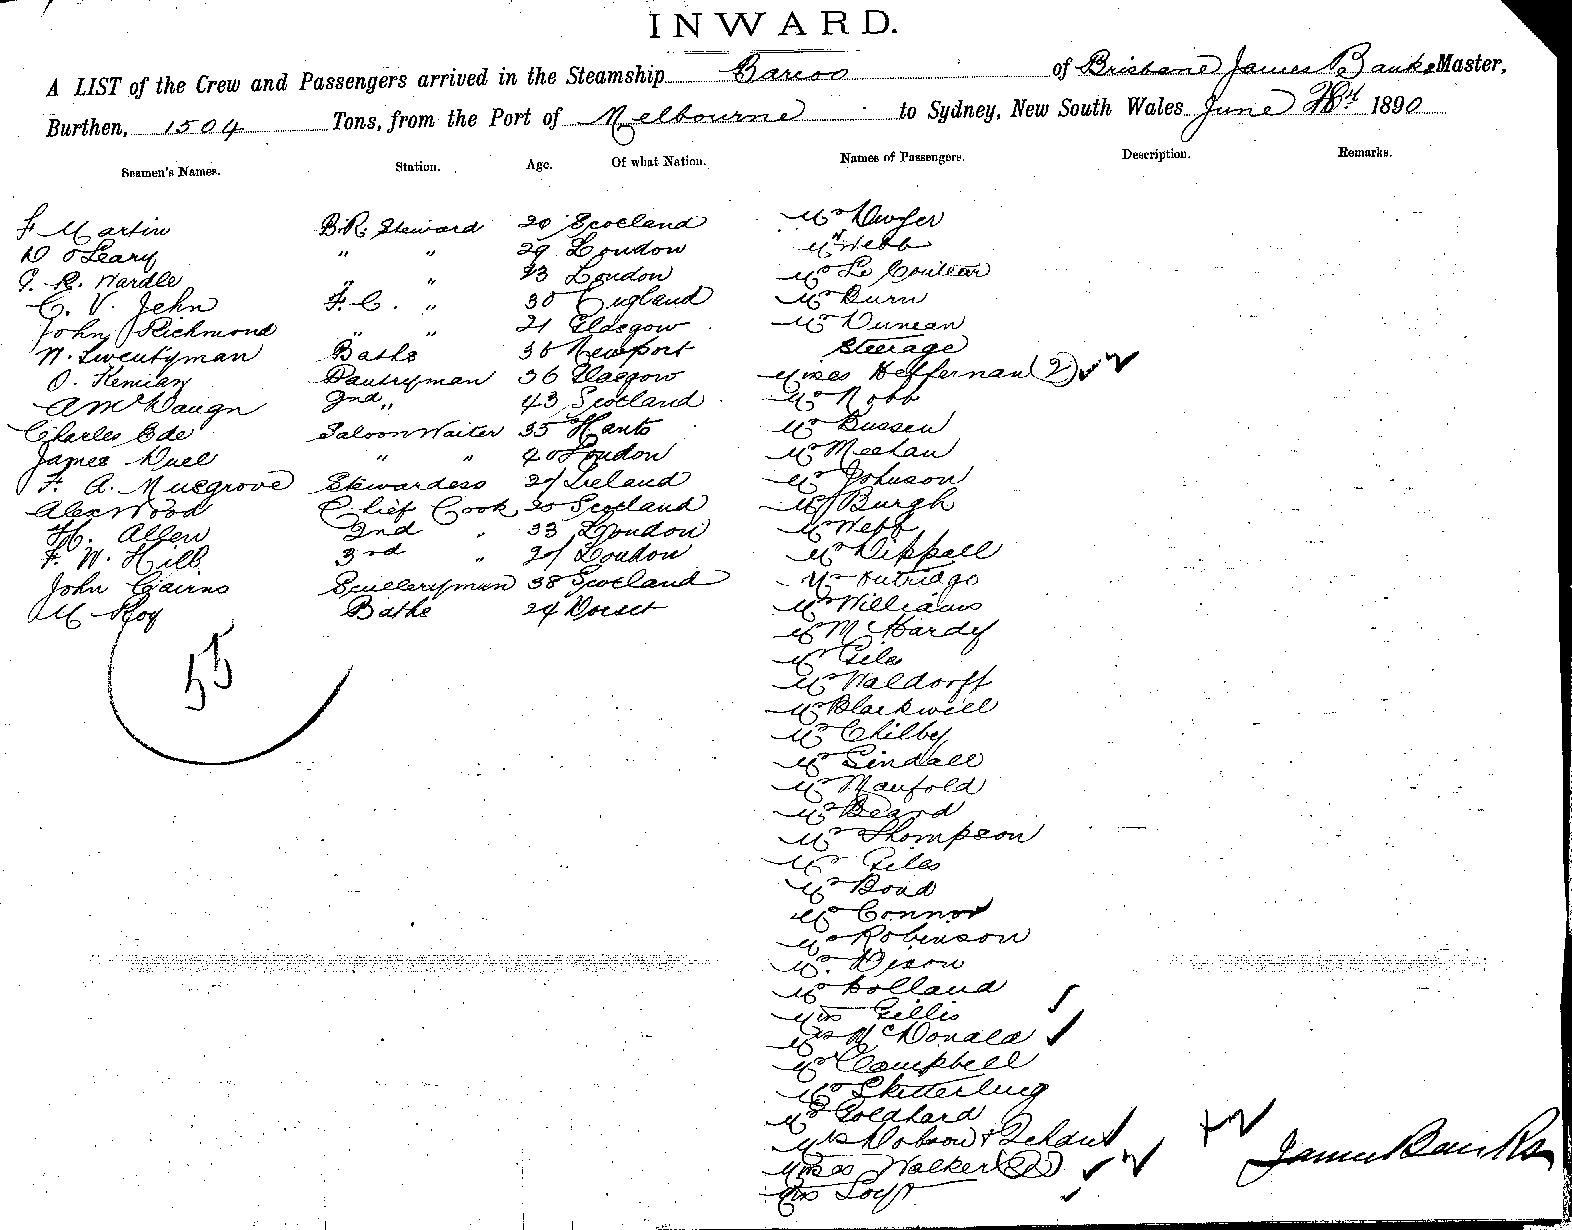 INWARD.
A LIST of the Crew and Passengers arrived in the Steamship Barcoo of Brisbane James Banks Master,
Burthen, 1504 Tons, from the Port of Melbourne to Sydney, New South Wales June 28th 1890
Seamen's Names. Station. Age. Of what Nation. Names of Passengers. Description. Remarks.
F Martin B.R. Steward 20 Scotland Mr Dwyer
D O'Leary " " 29 London Mr Webb
G. R. Wardle " " 23 London Mr Le Couteur
C. V. Jehn F.C. " 30 England Mr Burn
John Richmond " " 21 Glasgow Mr Duncan
W. Twentyman Baths 36 Newport Steerage
O. Pantryman 36 Glasgow Misses Heffernan (2)
A 2nd " 43 Scotland Mr Robb
Charles Ede Saloon Waiter 35 Hants Mr Bussen
James Duel " " 40 London Mr Meehan
F. A. Musgrove Stewardess 27 Ireland Mr Johnson
Alex Wood Chief Cook 20 Scotland Mr Burgh
H. Allen 2nd " 33 London Mr Webb
F. W. Hill 3rd " 27 London Mr Dippell
John Cairns Sculleryman 38 Scotland Mr
M Roy Baths 24 Dorset Mr Williams
Mr McHardy
55
Mr Giles
Mr Waldorff
Mr Blackwell
Mr Chilby
Mr Gindall
Mr Manfold
Mr Beard
Mr Thompson
Mr Giles
Mr Bond
Mr Connor
Mr Robinson
Mr Dixon
Mr Holland
Mrs Gillis
Mrs McDonald
Mr Campbell
Mr Sketterling
Mr Goldhard
Mrs Dobson +
Misses Walker (2)
Mrs
James Banks